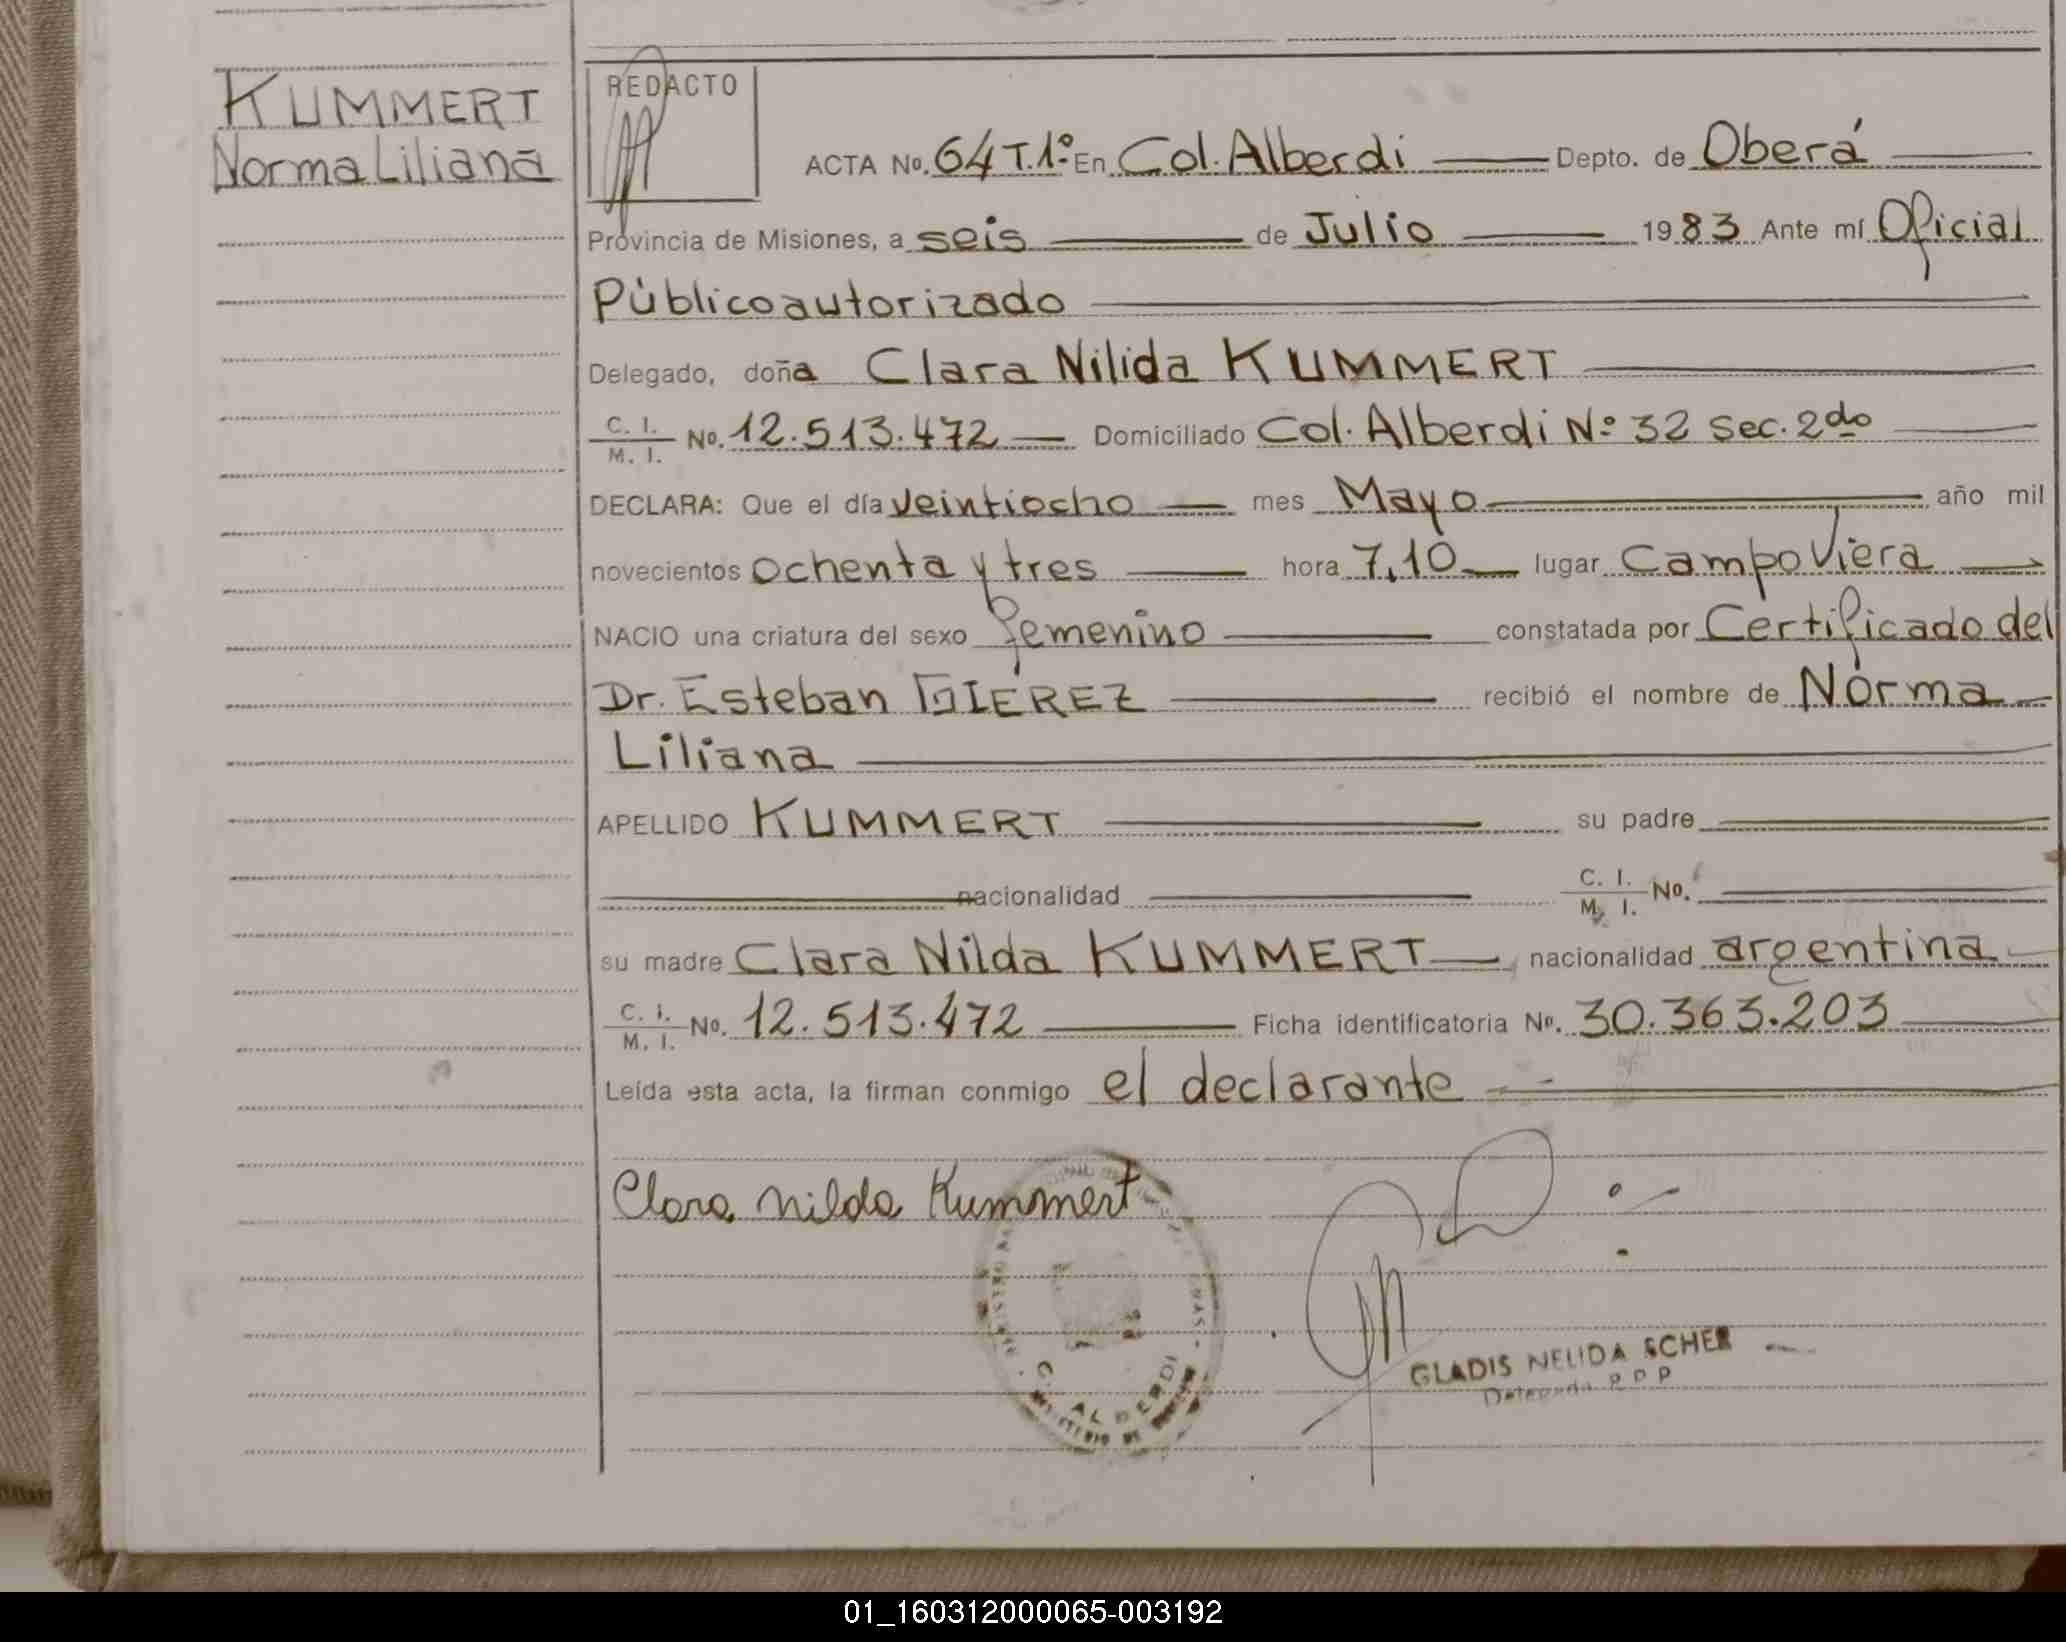 KUMMERT
Norma Liliana
REDACTO
ACTA No. 64 T.1º En Col. Alberdi Depto. de Oberá
Provincia de Misiones, a seis de Julio 1983 Ante mí Oficial
Público autorizado
Delegado, doña Clara Nilida KUMMERT
C. I. M. I. No. 12.513.472 Domiciliado Col. Alberdi Nº 32 Sec. 2do
DECLARA: Que el día veintiocho mes Mayo año mil
novecientos ochenta y tres hora 7,10 lugar Campo Viera
NACIO una criatura del sexo femenino constatada por Certificado del
Dr. Esteban recibió el nombre de Norma
Liliana
APELLIDO KUMMERT su padre
nacionalidad C. I. M. I. No.
su madre Clara Nilda KUMMERT nacionalidad argentina
C. I. M. I. No. 12.513.472 Ficha identificatoria No. 30.363.203
Leída esta acta, la firman conmigo el declarante
Clara Nilda Kummert
C. ALBERDI
GLADIS NELIDA SCHER
01_160312000065-003192